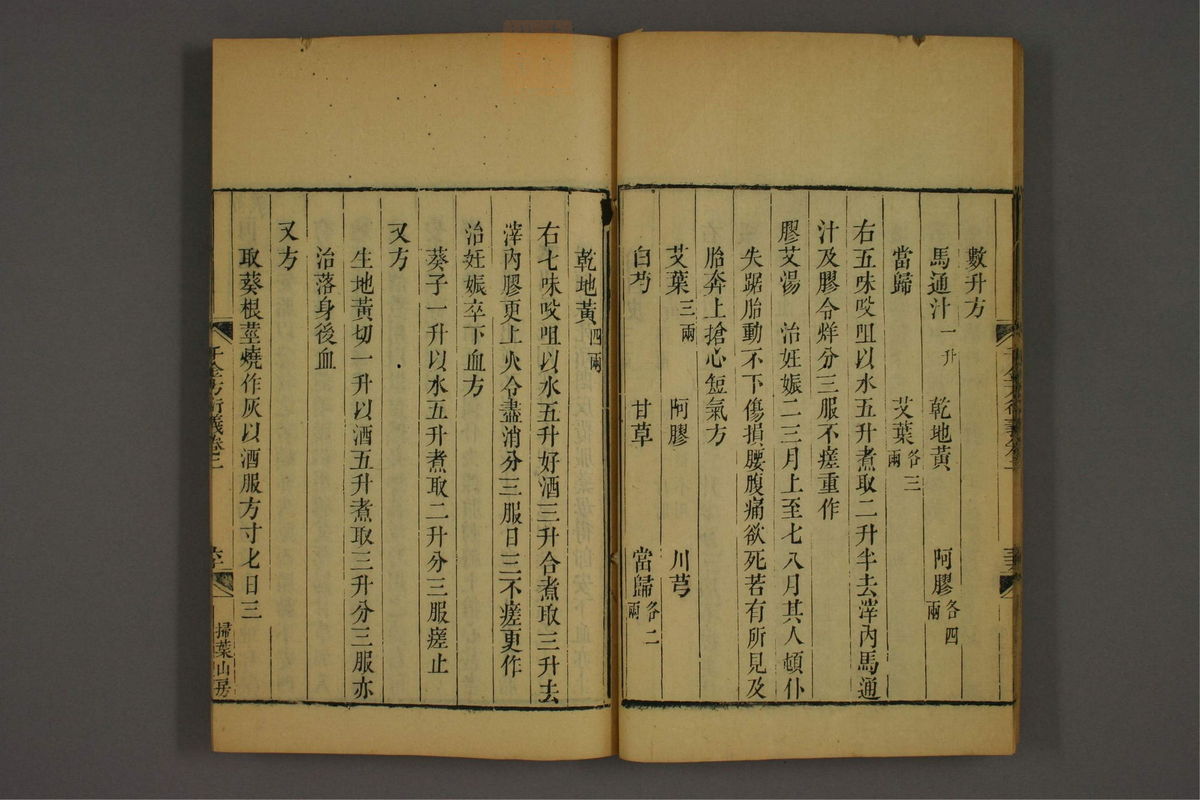 數升方
馬通汁一升　乾地黃　阿膠各四兩
當歸　艾葉各三兩
右五味㕮咀以水五升煮取二升半去滓內馬通
汁及膠令烊分三服不瘥重作
膠艾湯　治妊娠二三月上至七八月其人頓仆
失踞胎動不下傷損腰腹痛欲死若有所見及
胎奔上搶心短氣方
艾葉三兩　阿膠　川芎
白芍　甘草　當歸各二兩
乾地黃四兩
右七味㕮咀以水五升好酒三升合煮取三升去
滓內膠更上火令盡消分三服日三不瘥更作
治妊娠卒下血方
葵子一升以水五升煮取二升分三服瘥止
又方
生地黃切一升以酒五升煮取三升分三服亦
治落身後血
又方
取葵根莖燒作灰以酒服方寸匕日三
千金方衍義卷二
掃葉山房